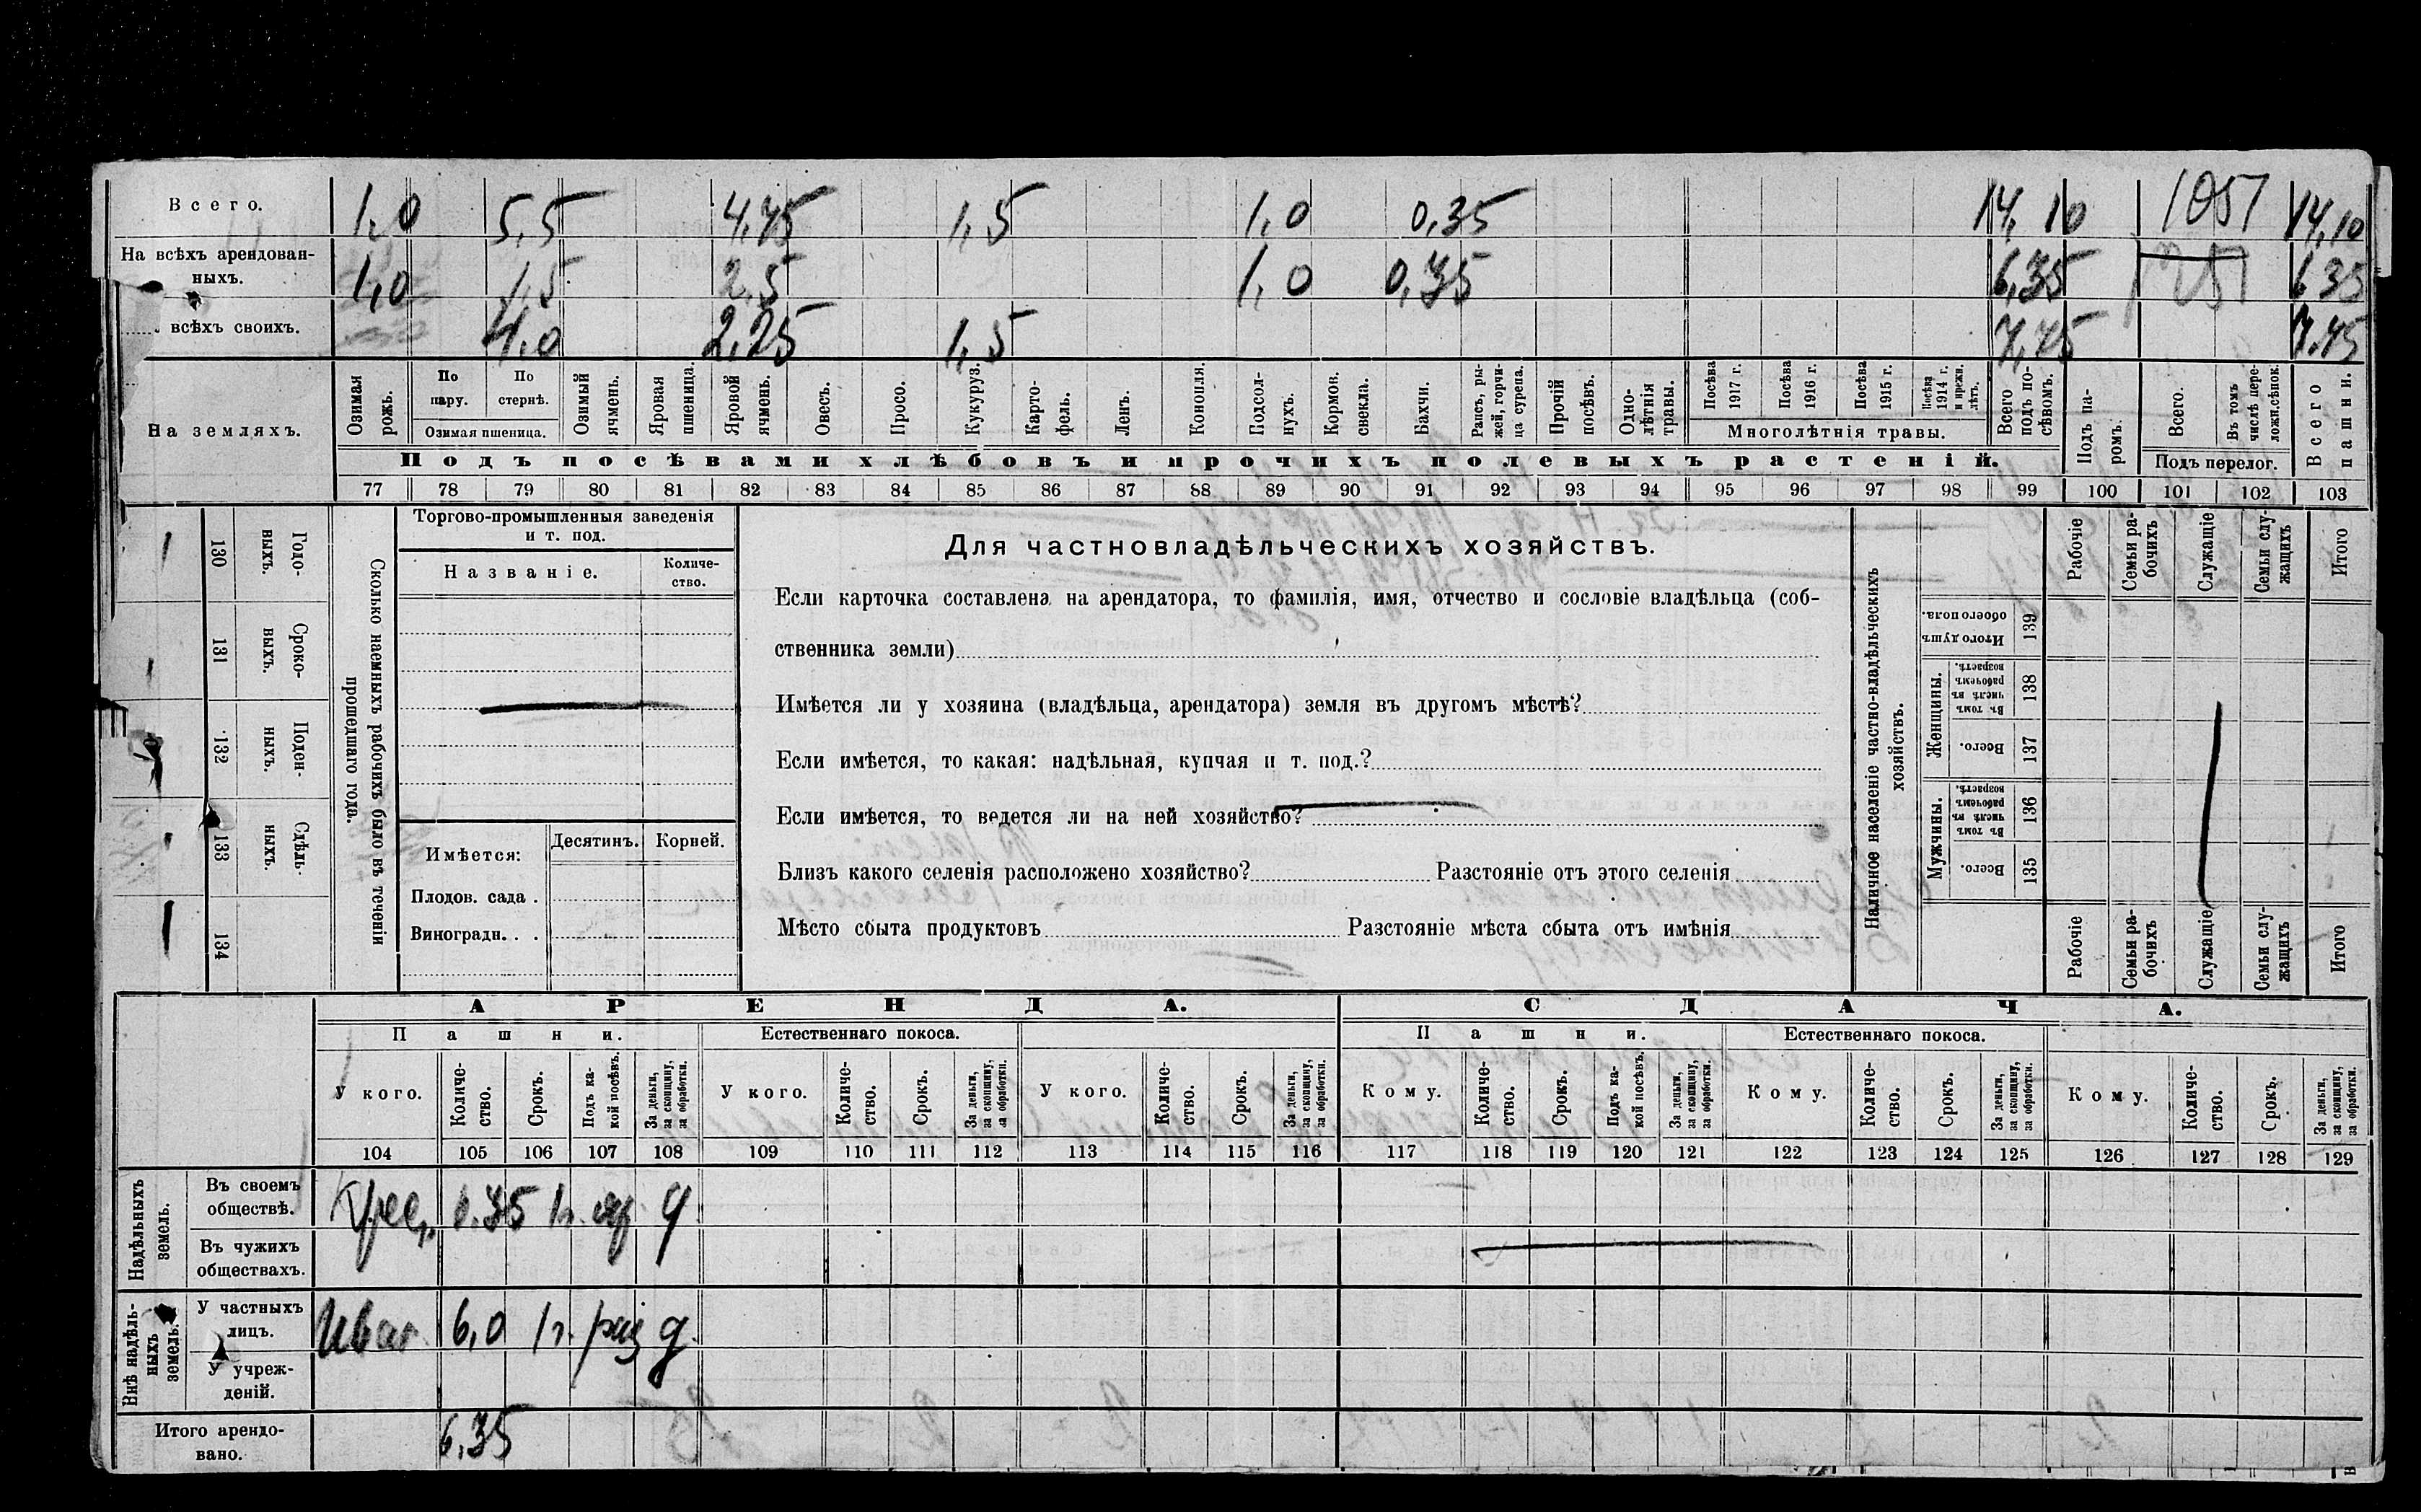 Всего. 1,0 5,5 4,75 1,5 1,0 0,35 14,10 1051 14,10
На всѣхъ арендован-
ныхъ. 1,0 1,5 2,5 1,0 0,35 6,35 6 35
всѣхъ своихъ. 4,0 2,25 1,5 7,75 7.75
На земляхъ.
Озимая рожь.
По пару.
По стернѣ.
Озимая пшеница.
Озимый ячмень.
Яровая пшеница.
Яровой ячмень.
Овесъ.
Просо.
Кукуруз.
Карто-
фель.
Ленъ.
Конопля.
Подсол-
нухъ.
Кормон. свекла.
Бахчи.
Рапсъ, ры-
жей, горчи-
ца сурепа.
Прочій посѣвъ.
Одно-
лѣтнія травы.
Посѣва 1917 г.
Посѣва 1916 г.
Посѣва 1915 г.
Посѣва 1914 г. и прежн. лѣтъ.
Многолѣтнія травы.
Всего подъ по-
сѣвомъ.
Подъ па-
ромъ.
Всего.
Въ томъ числѣ пере-
ложн.сѣнок.
Подъ перелог.
Всего пашни.
Подъ посѣвами хлѣбовъ и прочихъ полевыхъ растеній.
77 78 79 80 81 82 83 84 85 86 87 88 89 90 91 92 93 94 95 96 97 98 99 100 101 102 103
130 Годо-
выхъ.
131 Сроко-
выхъ.
132 Поден-
ныхъ.
133 Сдѣль-
ныхъ.
134
Сколько наемныхъ рабочихъ было въ теченіи
прошедшаго года.
Торгово-промышленныя заведенія
и т. под.
Названіе. Количе-
ство.
Имѣется: Десятинъ. Корней.
Плодов. сада .
Виноградн. . .
Для частновладѣльческихъ хозяйствъ.
Если карточка составлена на арендатора, то фамилія, имя, отчество и сословіе владѣльца (соб-
ственника земли)
Имѣется ли у хозяина (владѣльца, арендатора) земля въ другомъ мѣстѣ?
Если имѣется, то какая: надѣльная, купчая и т. под.?
Если имѣется, то ведется ли на ней хозяйство?
Близъ какого селенія расположено хозяйство? Разстояніе отъ этого селенія
Мѣсто сбыта продуктовъ Разстояніе мѣста сбыта отъ имѣнія
Наличное населеніе частно-владѣльческихъ
хозяйствъ.
Рабочіе
Семьи ра-
бочихъ
Служащіе
Семьи слу-
жащихъ
Итого
Итого душъ обоего пола. 139
Женщины.
Въ томъ числѣ въ рабочемъ возрастѣ. 138
Всего. 137
Мужчины.
Въ томъ числѣ въ рабочемъ возрастѣ. 136
Всего. 135
Рабочіе
Семьи ра-
бочихъ
Служащіе
Семьи слу-
жащихъ
Итого
АРЕНДА. СДАЧА.
Пашни. Естественнаго покоса. Пашни. Естественнаго покоса.
У кого. Количе-
ство. Срокъ. Подъ ка-
кой посѣвъ. За деньги, за скопщину, за обработки.
У кого. Количе-
ство. Срокъ. За деньги, за скопщину, за обработки.
У кого. Количе-
ство. Срокъ. За деньги, за скопщину, за обработки.
Кому. Количе-
ство. Срокъ. Подъ ка-
кой посѣвъ. За деньги, за скопщину, за обработки.
Кому. Количе-
ство. Срокъ. За деньги, за скопщину, за обработки.
Кому. Количе-
ство. Срокъ. За деньги, за скопщину, за обработки.
104 105 106 107 108 109 110 111 112 113 114 115 116 117 118 119 120 121 122 123 124 125 126 127 128 129
Надѣльныхъ земель.
Въ своемъ
обществѣ. 0.35 1г.
Въ чужихъ
обществахъ.
Внѣ надѣль-
ныхъ земель.
У частныхъ
лицъ. 6,0 1г. д.
У учреж-
деній.
Итого арендо-
вано. 6,35